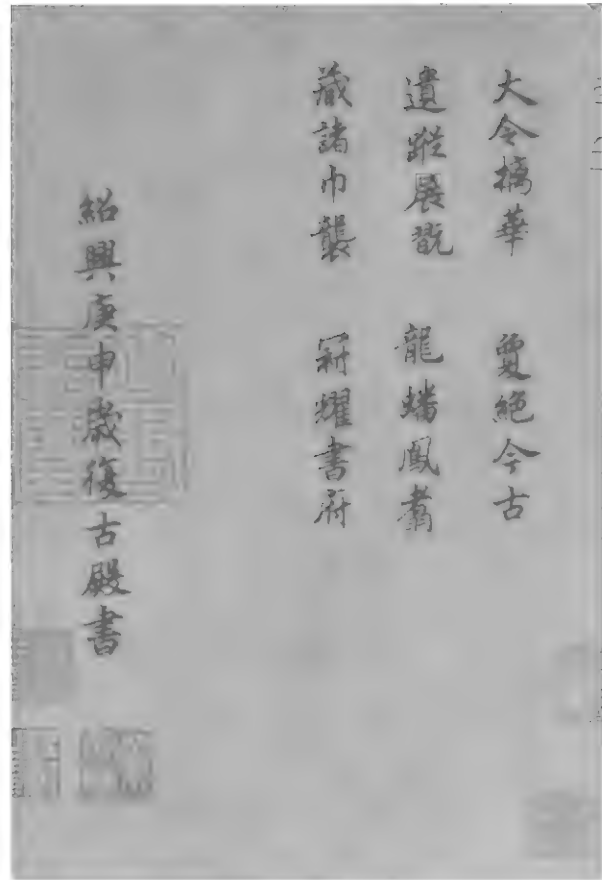 大令摛華 敻絕今古
遺蹤展翫 龍蟠鳳翥
藏諸巾襲 冠耀書府
紹興庚申歲復古殿書